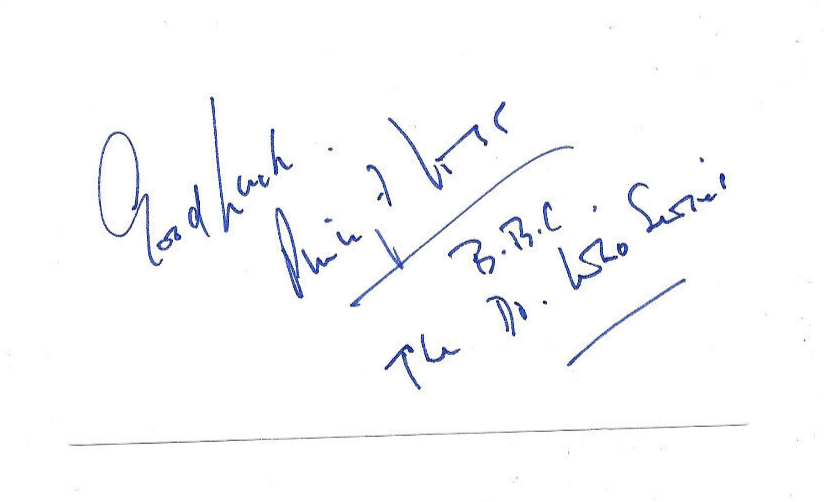 Good Luck.
Philip
B.B.C.
The Dr. Who Series